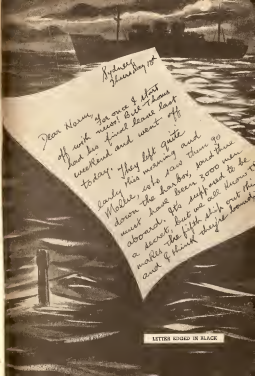 Sydney
Thursday 10th
Dear Norm,
For once I start
off with news! Bill Thoms
had his final leave last
weekend and went off
today. They left quite
early this morning and
Mollie, who saw them go
down the harbor, said there
must have been 2000 men
aboard. It's supposed to be
a secret, but we all know it
makes the fifth ship out this
and I think they're bound
LETTER EDGED IN BLACK